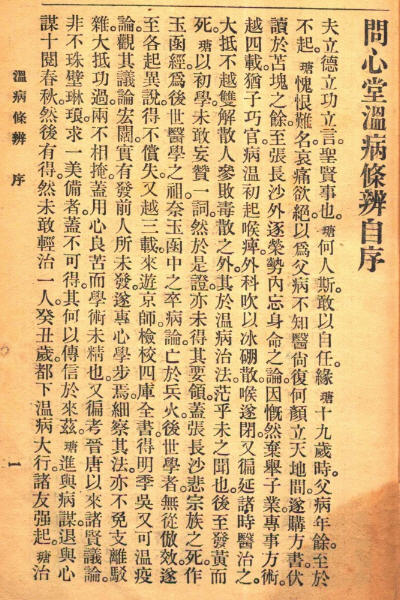 問心堂溫病條辨自序
夫立德立功立言聖賢事也。瑭何人斯。敢以自任。緣瑭十九歲時。父病年餘。至於
不起。瑭愧恨難名。哀痛欲絕。以為父病不知醫。尚復何顏立天地間。遂購方書。伏
讀於苫塊之餘。至張長沙外逐榮勢。內忘身命之論。因慨然棄舉子業。專事方術。
越四載。猶子巧官病溫。初起喉痺。外科吹以冰硼散。喉遂閉。又徧延諸時醫治之。
大抵不越雙解散人參敗毒散之外。其於溫病治法。茫乎未之聞也。後至發黃而
死。瑭以初學。未敢妄贊一詞。然於是證。亦未得其要領。蓋張長沙悲宗族之死。作
玉函經。為後世醫學之祖。奈玉函中之卒病論。亡於兵火。後世學者。無從倣效。遂
至各起異說。得不償失。又越三載。來遊京師。檢校四庫全書。得明季吳又可溫疫
論。觀其議論宏闊。實有發前人所未發。遂專心學步焉。細察其法。亦不免支離駁
雜。大抵功過兩不相掩。蓋用心良苦。而學術未精也。又徧考晉唐以來諸賢議論。
非不珠璧琳琅。求一美備者。蓋不可得。其何以傳信於來茲。瑭進與病謀。退與心
謀。十閱春秋。然後有得。然未敢輕治一人。癸丑歲。都下溫病大行。諸友强起瑭治
溫病條辨 序 1